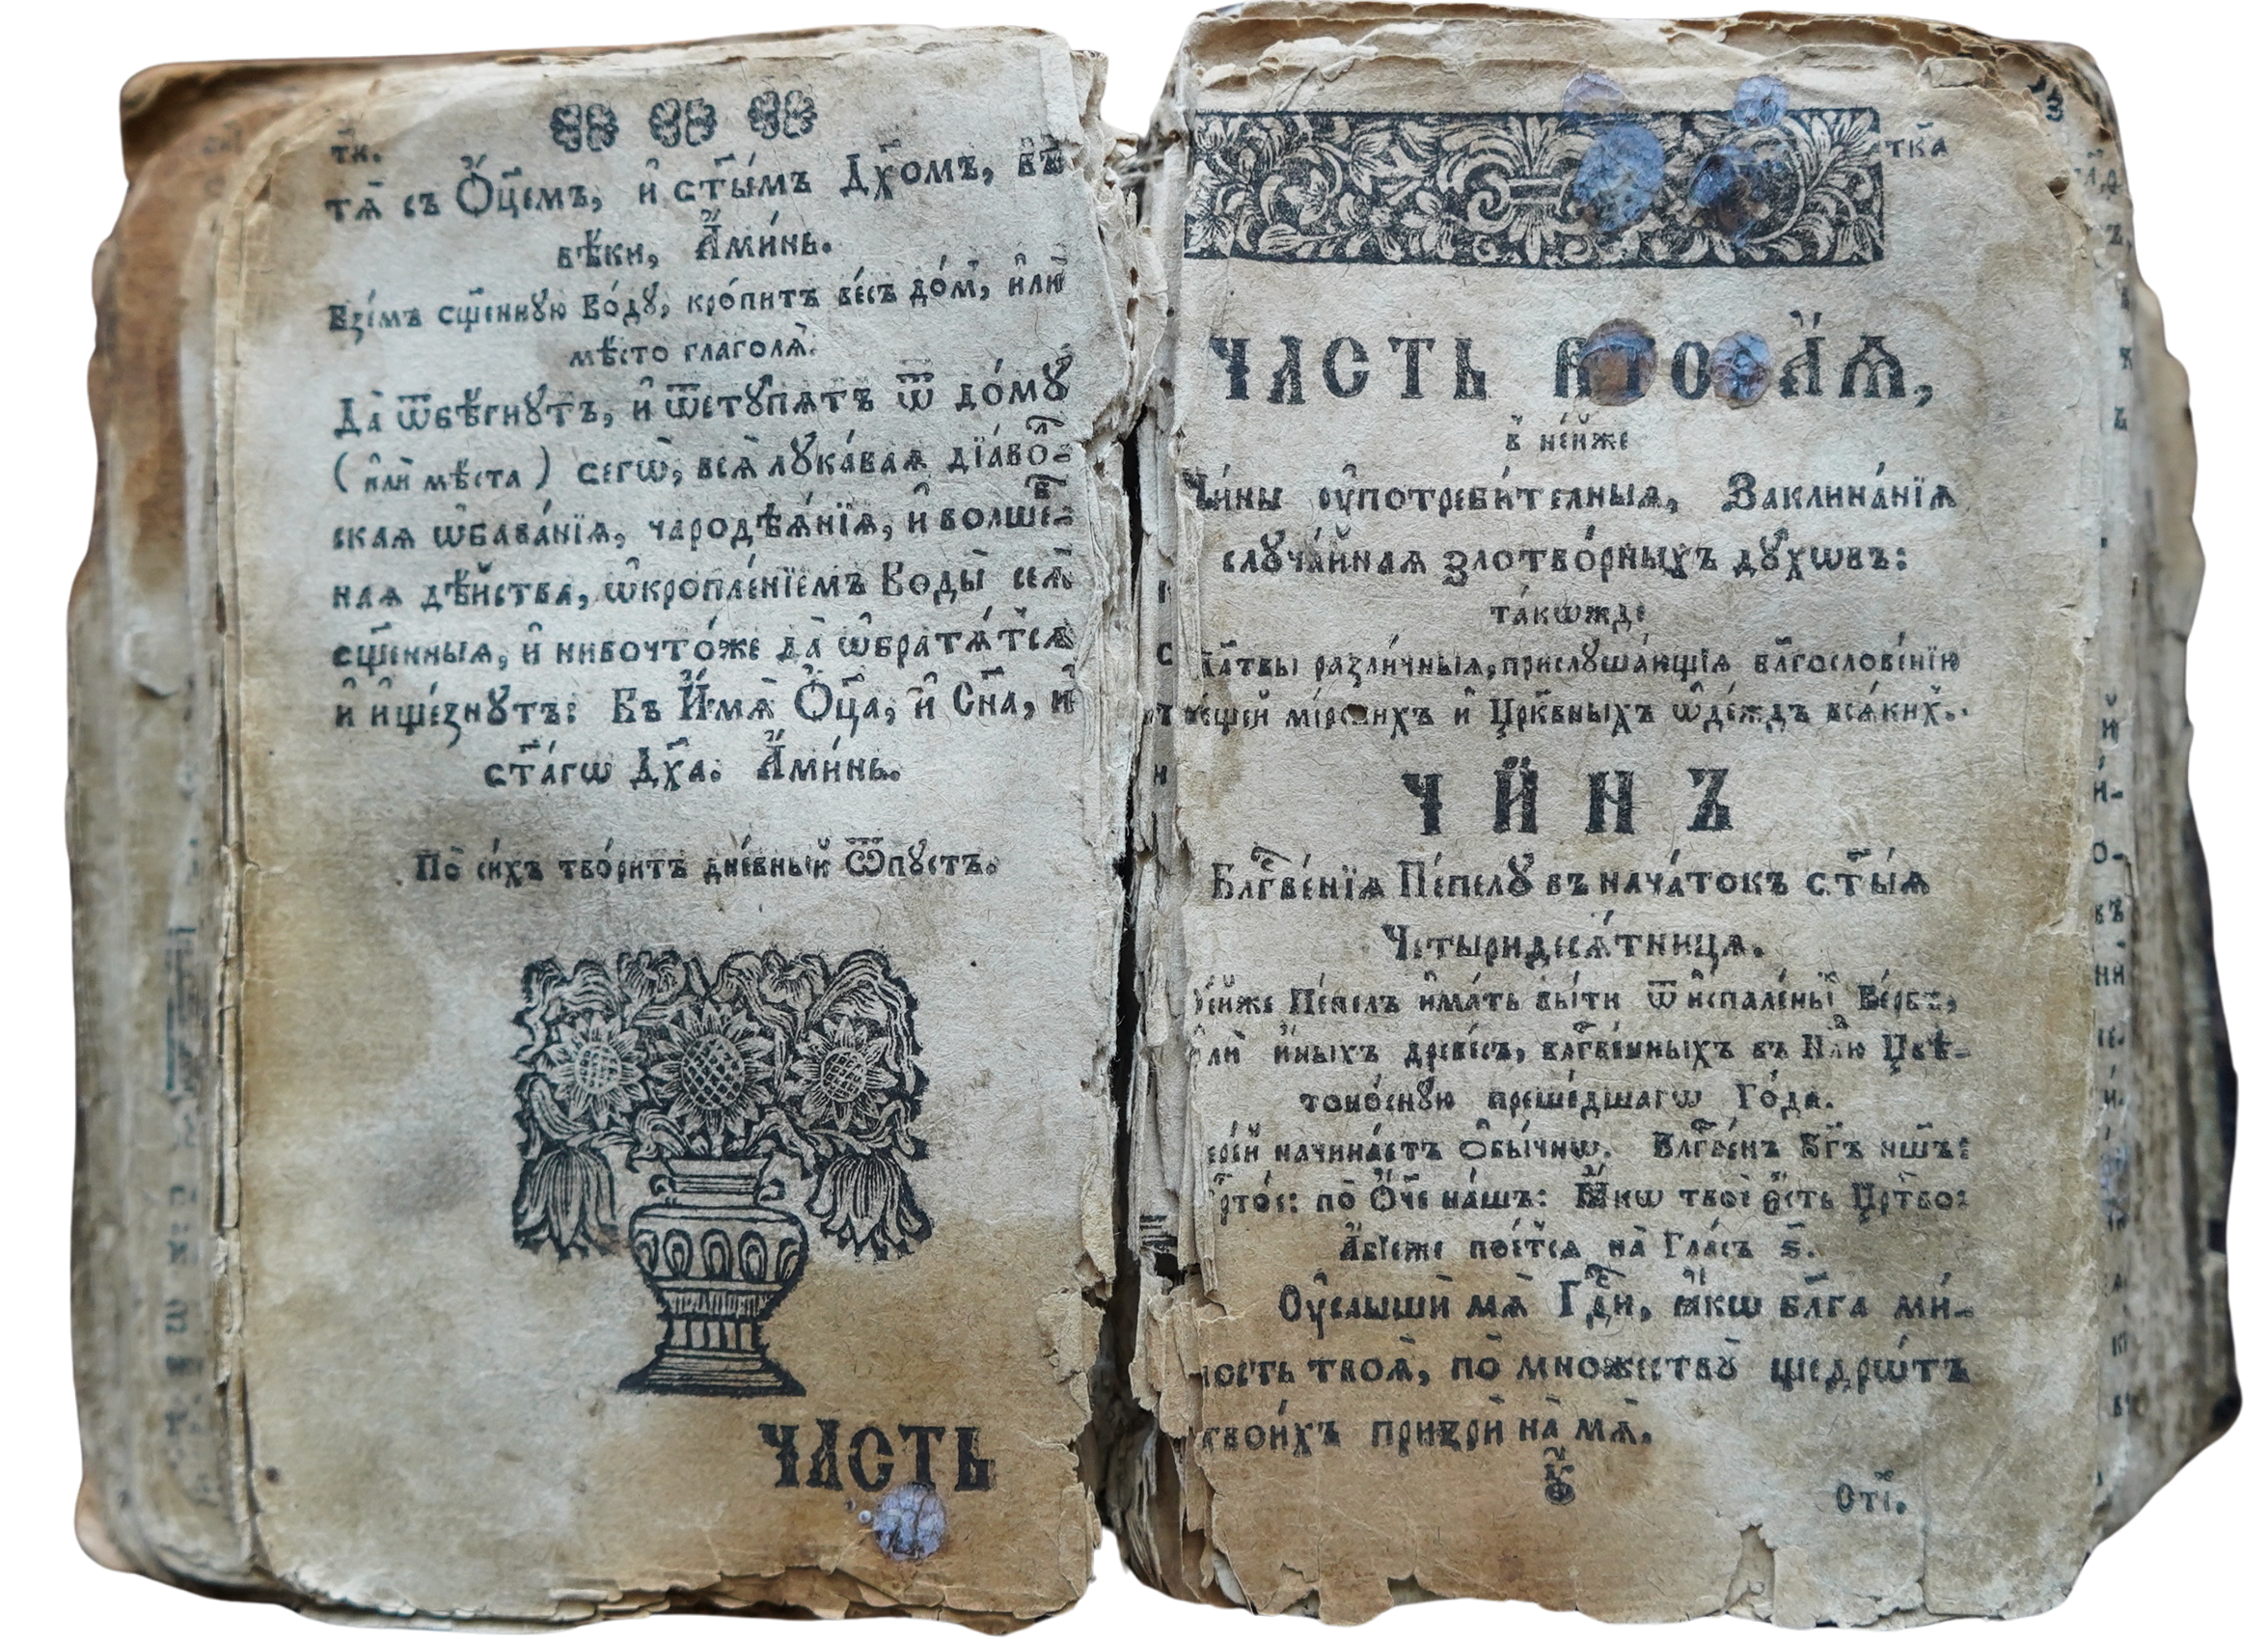 тк.
тѧ̀ съ Ѻ҆ц҃емъ, и҆ ст҃ы́мъ Дх҃омъ, въ
вѣ́ки, А҆ми́нь.
Взе́мъ сщ҃е́ннꙋю Во́дꙋ, кро́питъ ве́сь до́м̾, и҆лѝ
мѣ́сто глаго́лѧ:
Да̀ ѿбѣ́гнꙋтъ, и҆ ѿстꙋ́пѧтъ ѿ до́мꙋ
( и҆лѝ мѣ́ста ) сегѡ̀, всѧ̀ лꙋка́ваѧ дїа́воⷧ҇-
скаѧ ѡ҆бава́нїѧ, чародѣѧ́нїѧ, и҆ волшеⷡ҇-
наѧ дѣ́йства, ѡ҆кропле́нїемъ Воды̀ сеѧ̀
сщ҃е́нныѧ, и҆ нивочто́же да̀ ѡ҆братѧ́тсѧ
и҆ и҆ще́знꙋтъ: Въ И҆́мѧ Ѻ҆ц҃а, и҆ Сн҃а, и҆
ст҃а́гѡ Дх҃а. А҆ми́нь.
По си́хъ твори́тъ дне́вный Ѿпꙋстъ.
ЧАСТЬ
ткⷶ҇
ЧАСТЬ ВТОРАѦ,
в̾ не́йже
Чи́ны ᲂу҆потреби́телныѧ, Заклина́нїѧ
слꙋча́йнаѧ ѕлотво́рныхъ дꙋ́хѡвъ:
та́кѡжде
разли́чныѧ, прислꙋша́ющїѧ блг҃ослове́нїю
мірски́хъ и҆ Цр҃ко́вныхъ ѡ҆де́ждъ всѧ́ких̾.
ЧИНЪ
Блг҃ве́нїѧ Пе́пелꙋ въ нача́токъ ст҃ы́ѧ
Четыридесѧ́тницѧ.
Пе́пелъ и҆ма́ть бы́ти ѿ и҆спале́нїѧ Ве́рбъ,
и҆́ныхъ древе́съ, блг҃ве́нныхъ въ Нⷣлю Цвѣ-
тоно́снꙋю преше́дшагѡ Го́да.
начина́етъ ѻ҆бы́чнѡ. Блг҃ве́нъ Бг҃ъ нш҃ъ:
по Ѻ҆́ч҃е на́шъ: Ꙗ҆́кѡ твоѐ є҆́сть Црⷭ҇тво:
А҆́бїеже пое́тсѧ на Гла́съ ѕ҃.
Оу҆слы́ши мѧ̀ Гдⷭ҇и, ꙗ҆́кѡ бл҃га ми́-
лость твоѧ̀, по мно́жествꙋ щедрѡ́тъ
твои́хъ при́зри на мѧ̀.
Оті.